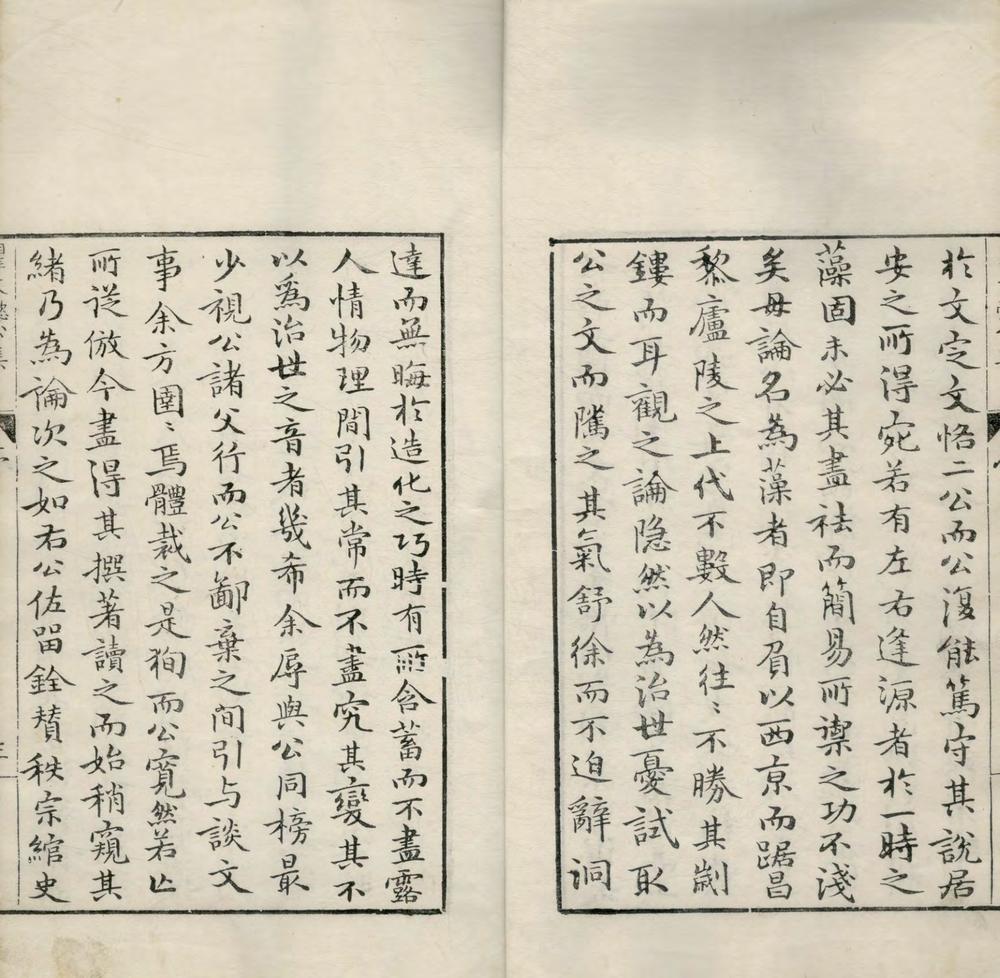 於文定文恪二公而公復能篤守其說居
安之所得宛若有左右逢源者於一時之
藻固未必其盡袪而簡易所禦之功不淺
矣毋論名為藻者即自眉以西京而踞昌
黎廬陵之上代不數人然往〻不勝其劌
鏤而耳觀之論隐然以為治世憂試取
公之文而隲之其氣舒徐而不迫辭洞
達而無晦於造化之巧時有所含蓄而不盡露
人情物理間引其常而不盡究其變其不
以爲治世之音者幾希余辱與公同榜最
少視公諸父行而公不鄙棄之间引与談文
事余方圉〻焉體裁之是狥而公寬然若亾
所從倣今盡得其撰著讀之而始稍窺其
緒乃為論次之如右公佐留銓賛秩宗綰史